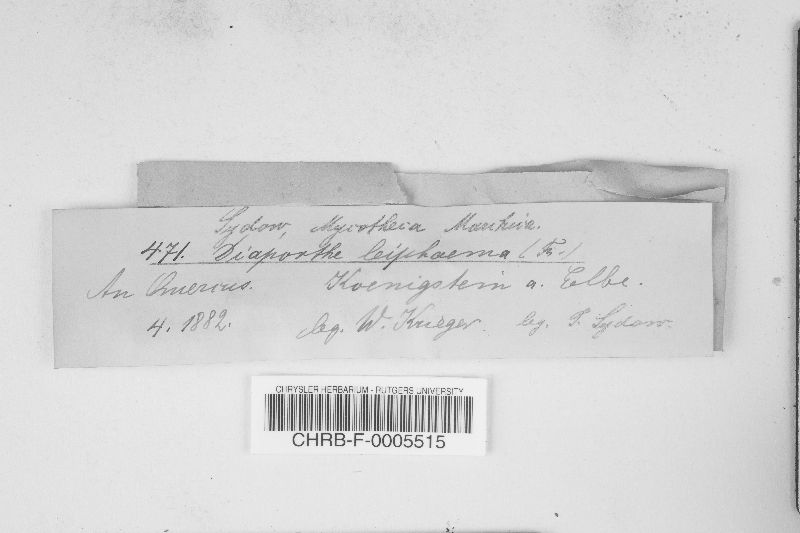 Sydow, Mycotheca Marchica.
471. Diaporthe leiphaema (Fr.)
An Quercus. Koenigstein a. Elbe.
4. 1882. leg. W. Krieger. leg. P. Sydow.
CHRYSLER HERBARIUM - RUTGERS UNIVERSITY
CHRB-F-0005515